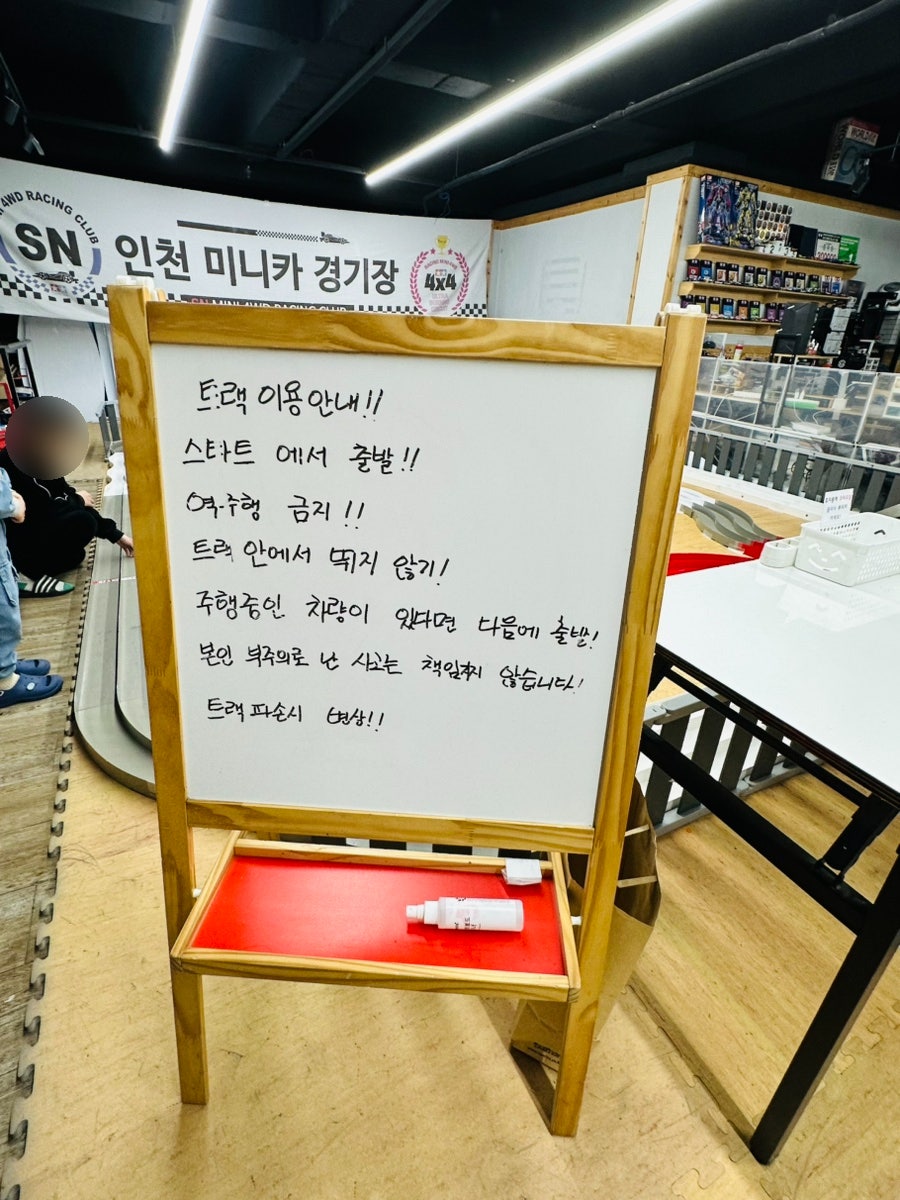 4WD RACING CLUB
SN
인천 미니카 경기장
4x4
SN MINI 4WD RACING CLUB
트랙 이용안내!!
스타트 에서 출발!!
역주행 금지!!
트랙 안에서 뛰지 않기!
주행중인 차량이 있다면 다음에 출발!
본인 부주의로 난 사고는 책임지지 않습니다!
트랙 파손시 변상!!